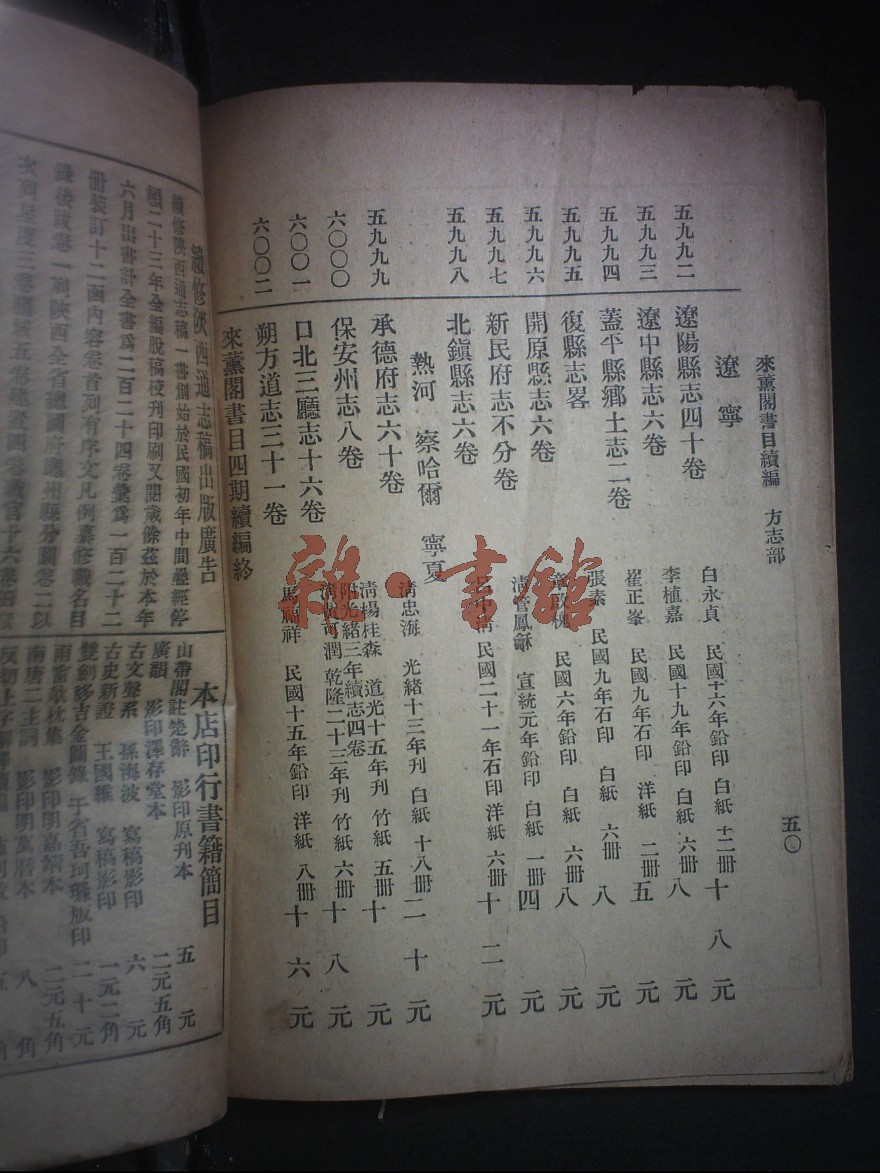 來薰閣書目續編 方志部 五〇
遼寧
五九九二 遼陽縣志四十卷 白永貞 民國十六年鉛印 白紙 十二冊 十八元
五九九三 遼中縣志六卷 李植嘉 民國十九年鉛印 白紙 六冊 八元
五九九四 蓋平縣鄉土志二卷 崔正峯 民國九年石印 洋紙 二冊 五元
五九九五 復縣志畧 張素 民國九年石印 白紙 六冊 八元
五九九六 開原縣志六卷 民國六年鉛印 白紙 六冊 八元
五九九七 新民府志不分卷 清管鳳龢 宣統元年鉛印 白紙 一冊 四元
五九九八 北鎮縣志六卷 民國二十一年石印 洋紙 六冊 十二元
熱河 察哈爾 寧夏
五九九九 承德府志六十卷 清忠海 光緒十三年刊 白紙 十八冊 二十元
六〇〇〇 保安州志八卷 清楊桂森 道光十五年刊 竹紙 五冊 十元
附光緒三年續志四卷
六〇〇一 口北三廳志十六卷 可潤 乾隆二十三年刊 竹紙 六冊 十八元
六〇〇二 朔方道志三十一卷 馬福祥 民國十五年鉛印 洋紙 八冊 十六元
來薰閣書目四期續編終
續修陝西通志稿出版廣告
續修陝西通志稿一書創始於民國初年中間疊經停
頓二十三年全編脫稿校刊印刷又閱歲餘茲於本年
六月出書計全書爲二百二十四卷彙爲一百二十二
冊裝訂十二函內容卷首列有序文凡例纂修職名目
錄後跋卷一列陝西全省
本店印行書籍簡目
山帶閣註楚辭 影印原刊本 五元
廣韻 影印澤存堂本 二元五角
古文聲系 孫海波 寫稿影印 六元
古史新證 王國維 寫稿影印 一元二角
雙劍誃吉金圖錄 于省吾 珂璆版印 二十元
雨窗欹枕集 影印明嘉靖本 二元五角
南唐二主詞 影印明萬曆本 八角
雜·書館